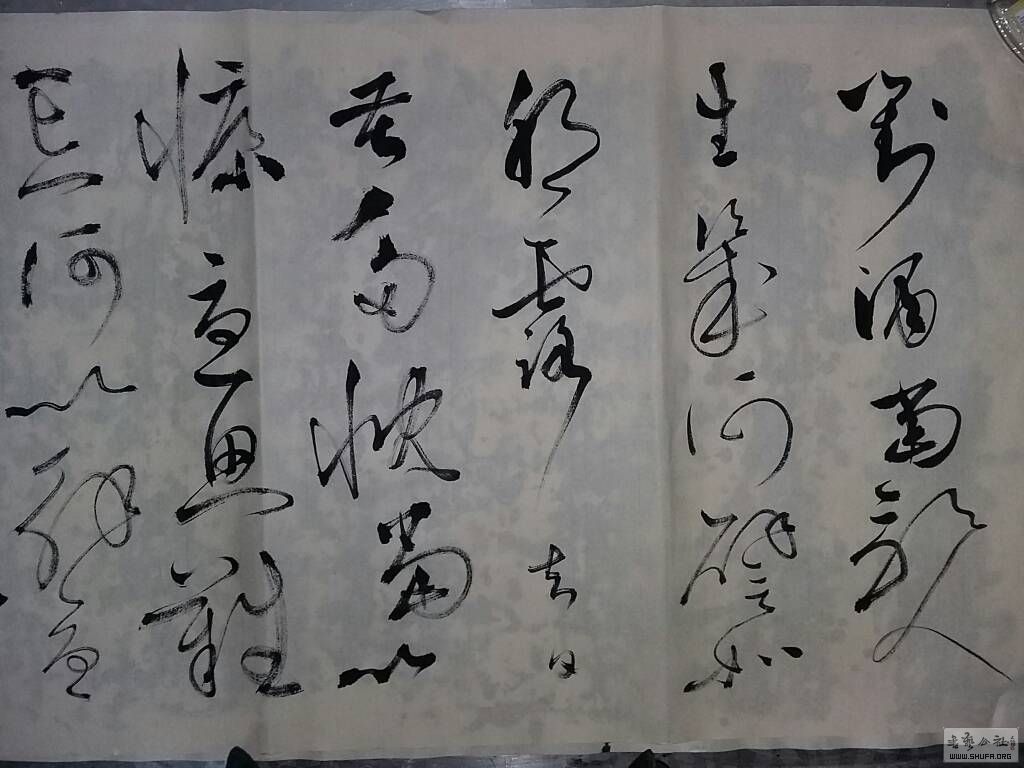 對酒當歌人
生幾何譬如
朝露去日
苦多慨當以
慷憂思難
忘何以解憂
書藝公社
WWW.SHUFA.ORG